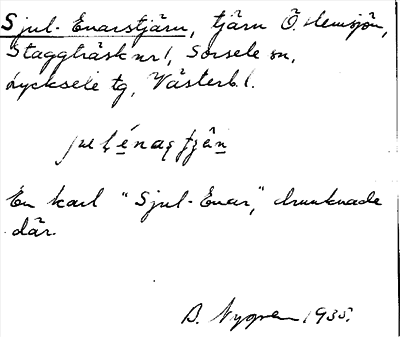 Sjul-Enarstjärn, tjärn Ö. Hemsjön,
Staggträsk nr 1, Sorsele sn,
Lycksele tg, Västerb. l.
En karl "Sjul-Enar", drunknade
där.
B. Nygren 1935.